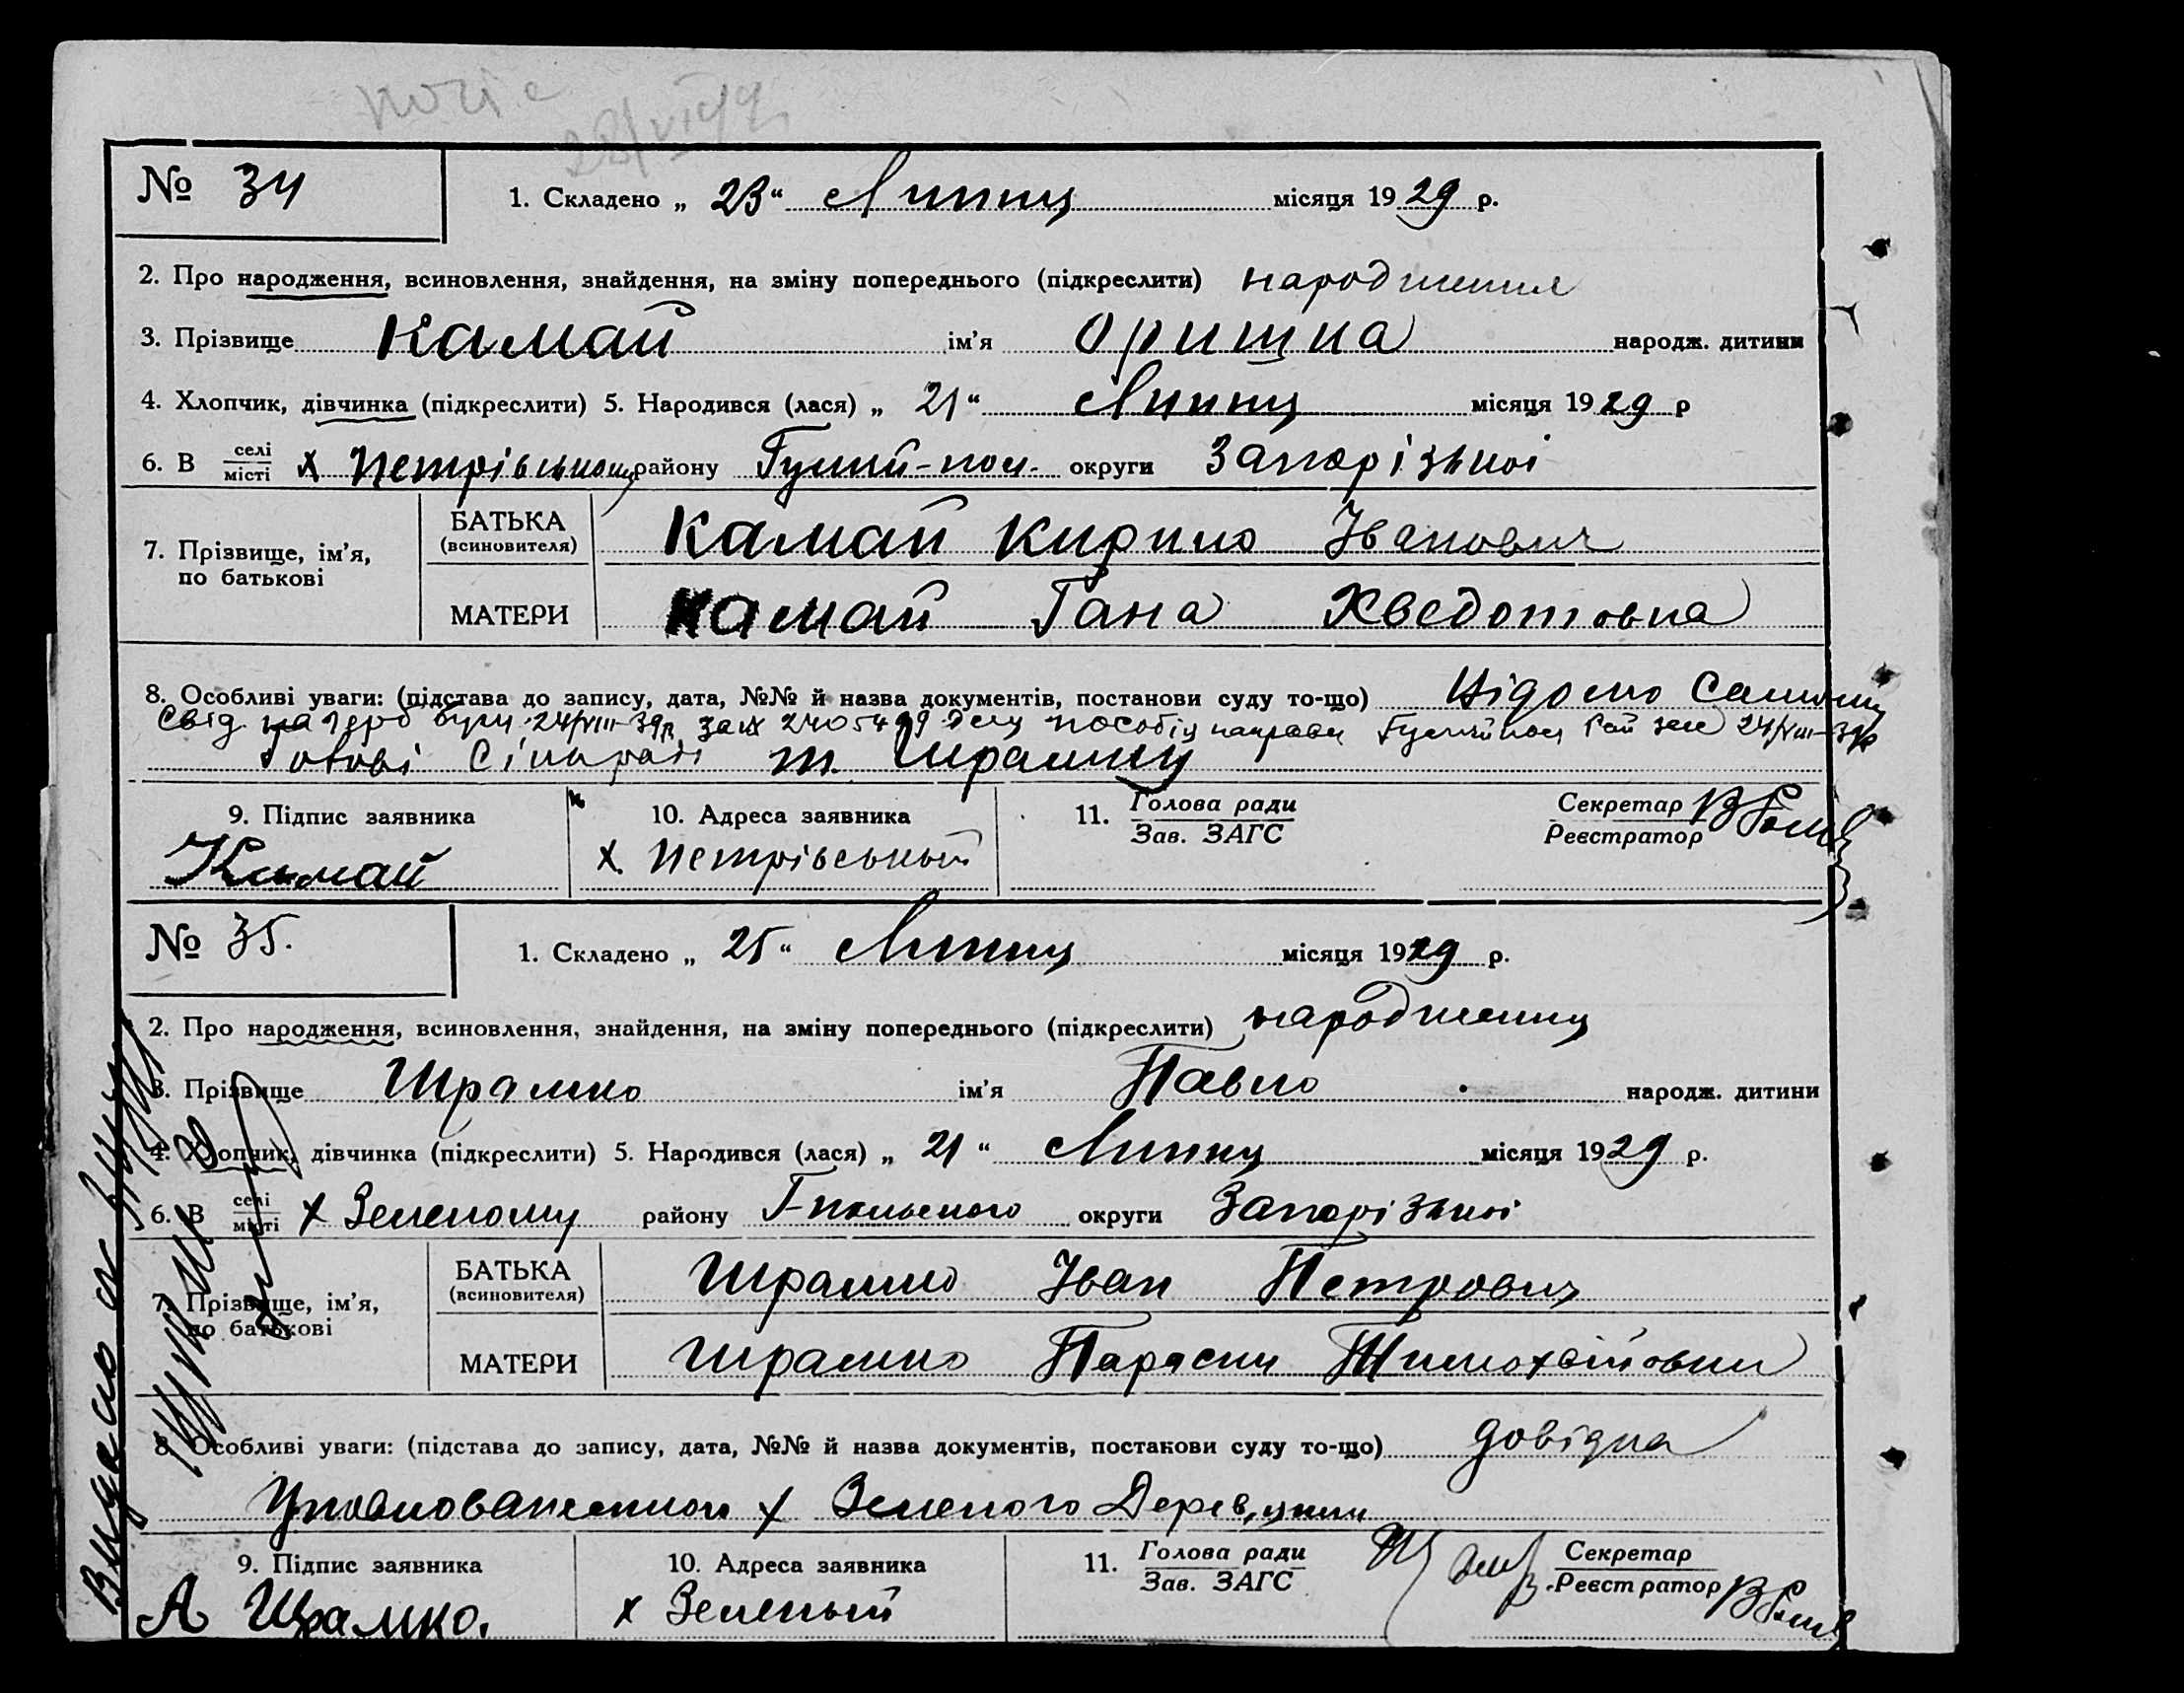 копія
№ 34
1. Складено „ 23 “ Липця місяця 1929 р.
2. Про народження, всиновлення, знайдення, на зміну попереднього (підкреслити) народження
3. Прізвище Камай ім’я Оришка народж. дитини
4. Хлопчик, дівчинка (підкреслити) 5. Народився (лася) „ 21 “ Липця місяця 1929 р
6. В селі/місті х Петрівському району Гуляй-пол. округи Запорізької
7. Прізвище, ім’я, по батькові
БАТЬКА (всиновителя) Камай Кирило Іванович
МАТЕРИ Камай Гана Хведотовна
8. Особливі уваги: (підстава до запису, дата, №№ й назва документів, постанови суду то-що) Відомо
Свід. 24/VIII-39р за № пособія 24/VIII-39р
Голові Сільради т. Шрамку
9. Підпис заявника
10. Адреса заявника
11. Голова ради / Зав. ЗАГС
Секретар / Реєстратор
Камай
х Петрівський
№ 35.
1. Складено „ 25 “ Липця місяця 1929 р.
2. Про народження, всиновлення, знайдення, на зміну попереднього (підкреслити) народження
3. Прізвище Шрамко ім’я Павло народж. дитини
4. Хлопчик, дівчинка (підкреслити) 5. Народився (лася) „ 21 “ Липця місяця 1929 р.
6. В селі/місті х Зеленому району Г-польського округи Запорізької
7. Прізвище, ім’я, по батькові
БАТЬКА (всиновителя) Шрамко Іван Петрович
МАТЕРИ Шрамко Параски Тимохвійовни
8. Особливі уваги: (підстава до запису, дата, №№ й назва документів, постанови суду то-що) довідка
Уповноваженного х Зеленого
9. Підпис заявника
10. Адреса заявника
11. Голова ради / Зав. ЗАГС
Секретар / Реєстратор
А Шрамко.
х Зелений